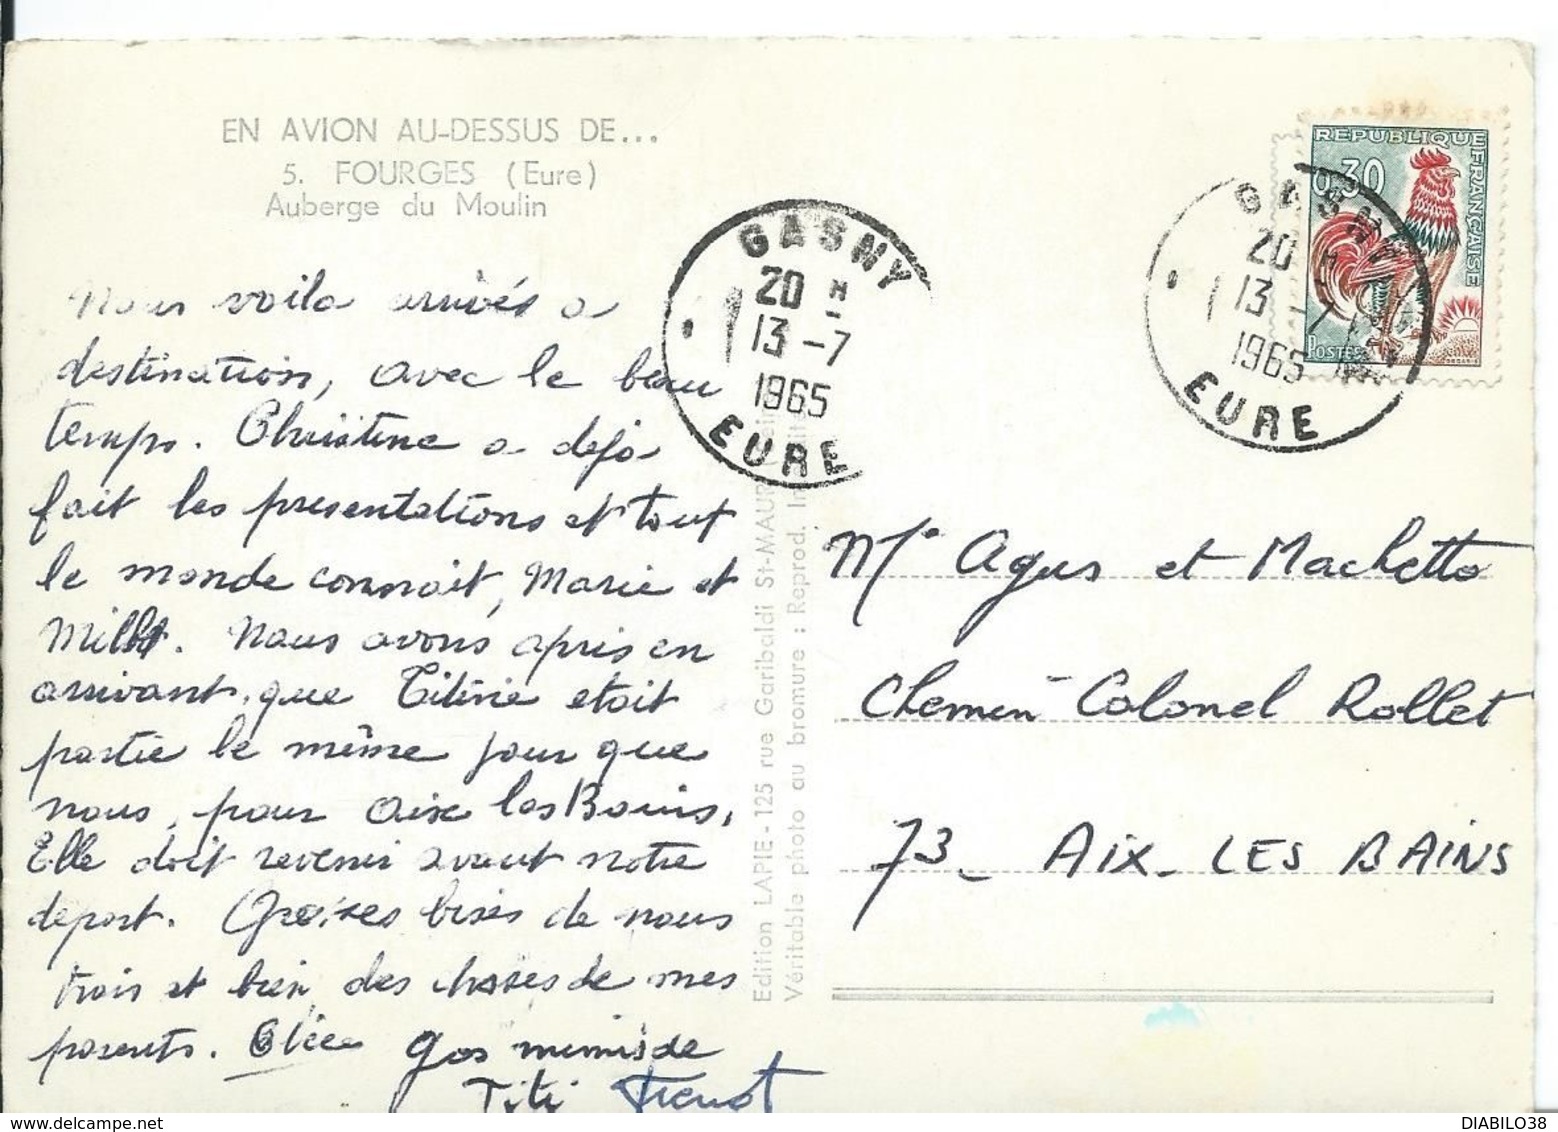 EN AVION AU-DESSUS DE...
5. FOURGES (Eure)
Auberge du Moulin
Nous voila arrivés a
destination, avec le beau
temps. Christine a dejà
fait les presentations et tout
le monde connait, Marie et
. Nous avons apris en
arrivant, que Titine etait
partie le même jour que
nous, pour Aix les Bains,
Elle doit revenir avant notre
depart. Grosses bises de nous
trois et bien des choses de mes
parents. gos mimis de
Titi
GASNY
20 H
13-7
1965
EURE
REPUBLIQUE FRANÇAISE
0,30
POSTES
GASNY
20 H
13-7
1965
EURE
Mr Agus et Machetto
Chemin Colonel Rollet
73_ AIX_LES BAINS
Edition LAPIE - 125 rue Garibaldi St-MAUR
Véritable photo au bromure : Reprod. Interdite
DIABILO38